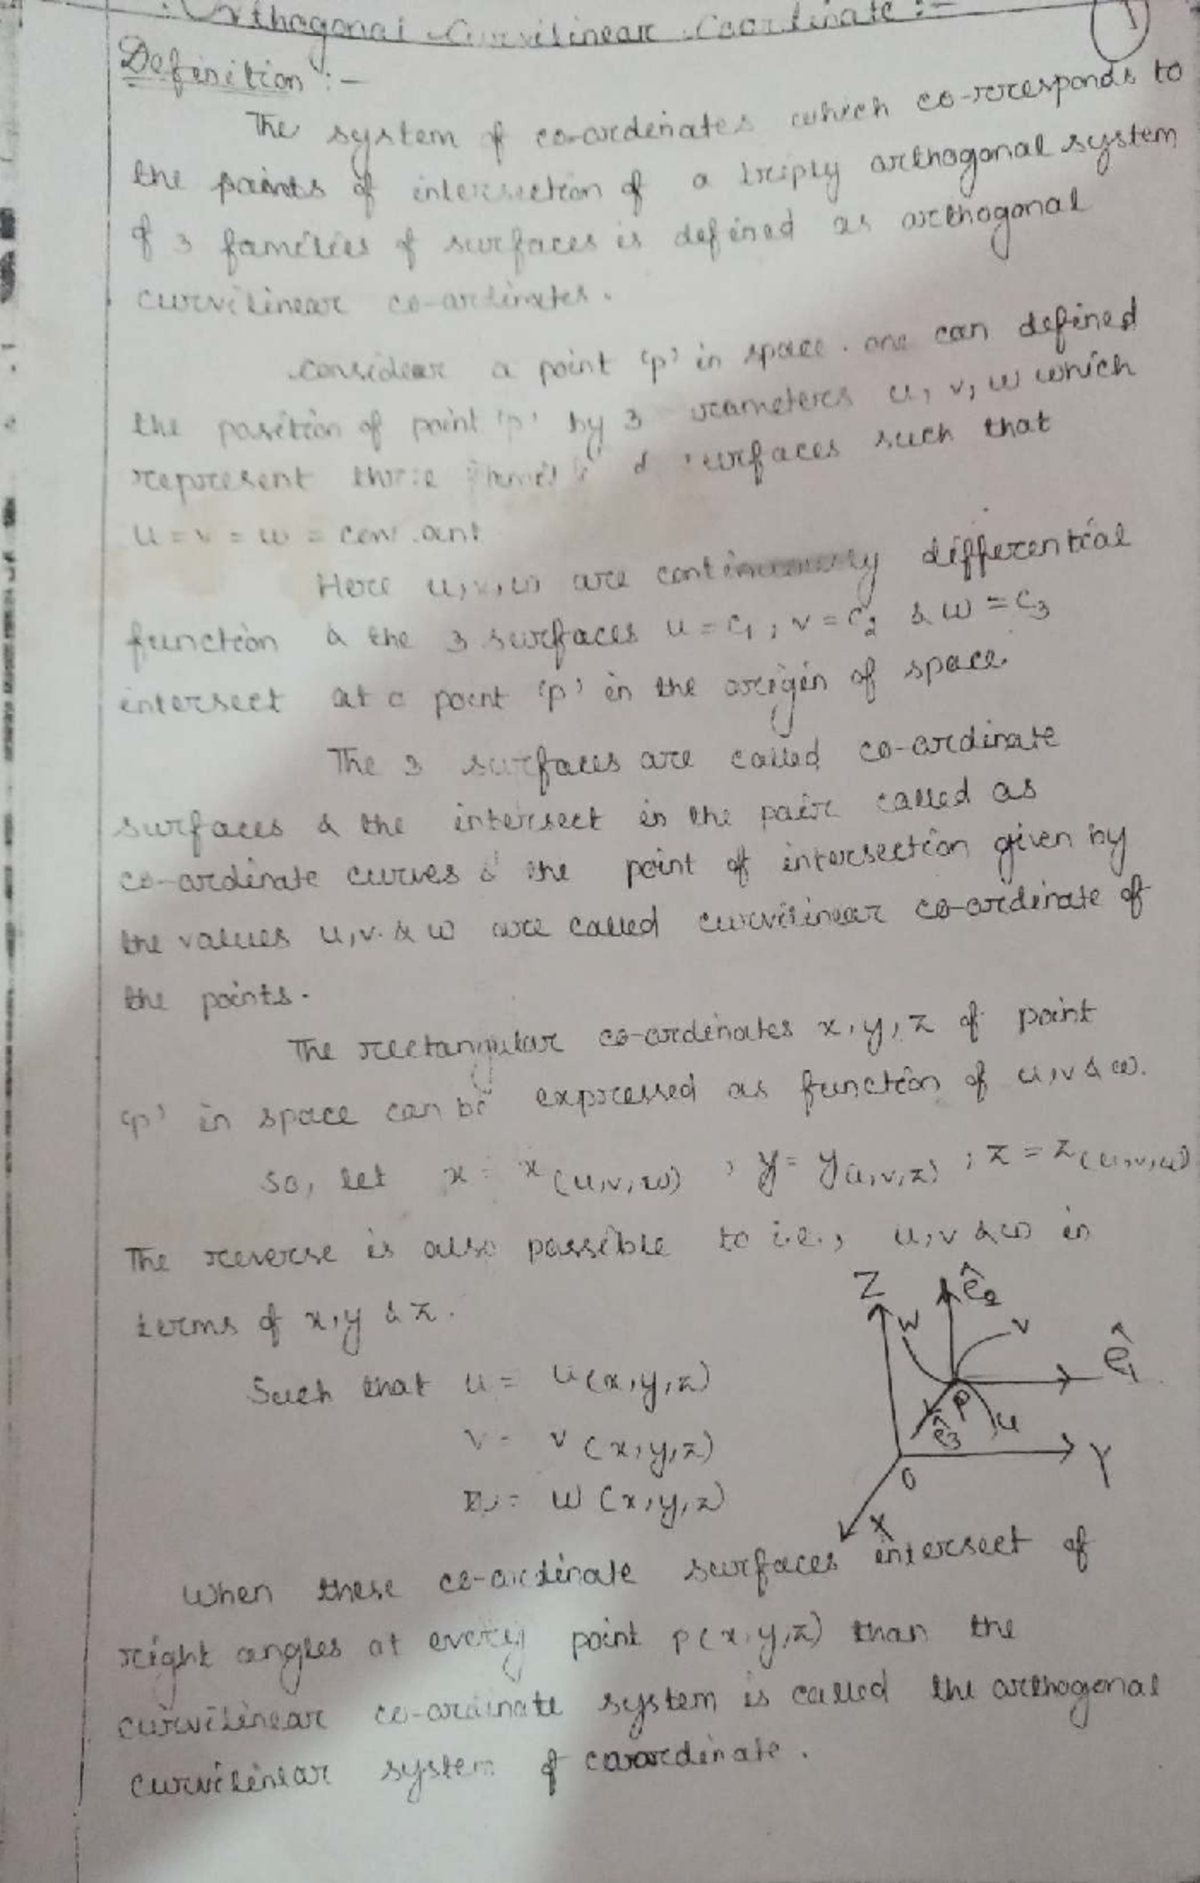 : Orthogonal Curvilinear Coordinate :-
1
Definition :-
The system of co-ordinates which co-rresponds to
the points of intersection of a triply orthogonal system
of 3 families of surfaces is defined as orthogonal
curvilinear co-ordinates.
Consider a point 'p' in space. one can defined
the position of point 'p' by 3 u, v, w which
represent three surfaces such that
u = v = w =
Here u, v, w are differential
function & the 3 surfaces u = c₁ ; v = c₂ & w = c₃
intersect at a point 'p' in the origin of space
The 3 surfaces are called co-ordinate
surfaces & the intersect in the pair called as
co-ordinate curves & the point of intersection given by
the values u, v & w are called curvilinear co-ordinate of
the points.
The rectangular co-ordinates x, y, z of point
'p' in space can be expressed as function of u, v & w.
So, let x = x (u, v, w) , y = y(u, v, z) ; z = z (u, v, w)
The reverse is also possible to i.e., u, v & w in
terms of x, y & z.
Such that u = u (x, y, z)
v = v (x, y, z)
= w (x, y, z)
Z
ê₂
W
V
ê₁
P
ê₃
u
O
Y
X
When these co-ordinate surfaces intersect of
right angles at every point p (x, y, z) than the
curvilinear co-ordinate system is called the orthogonal
curvilinear system of coordinate.